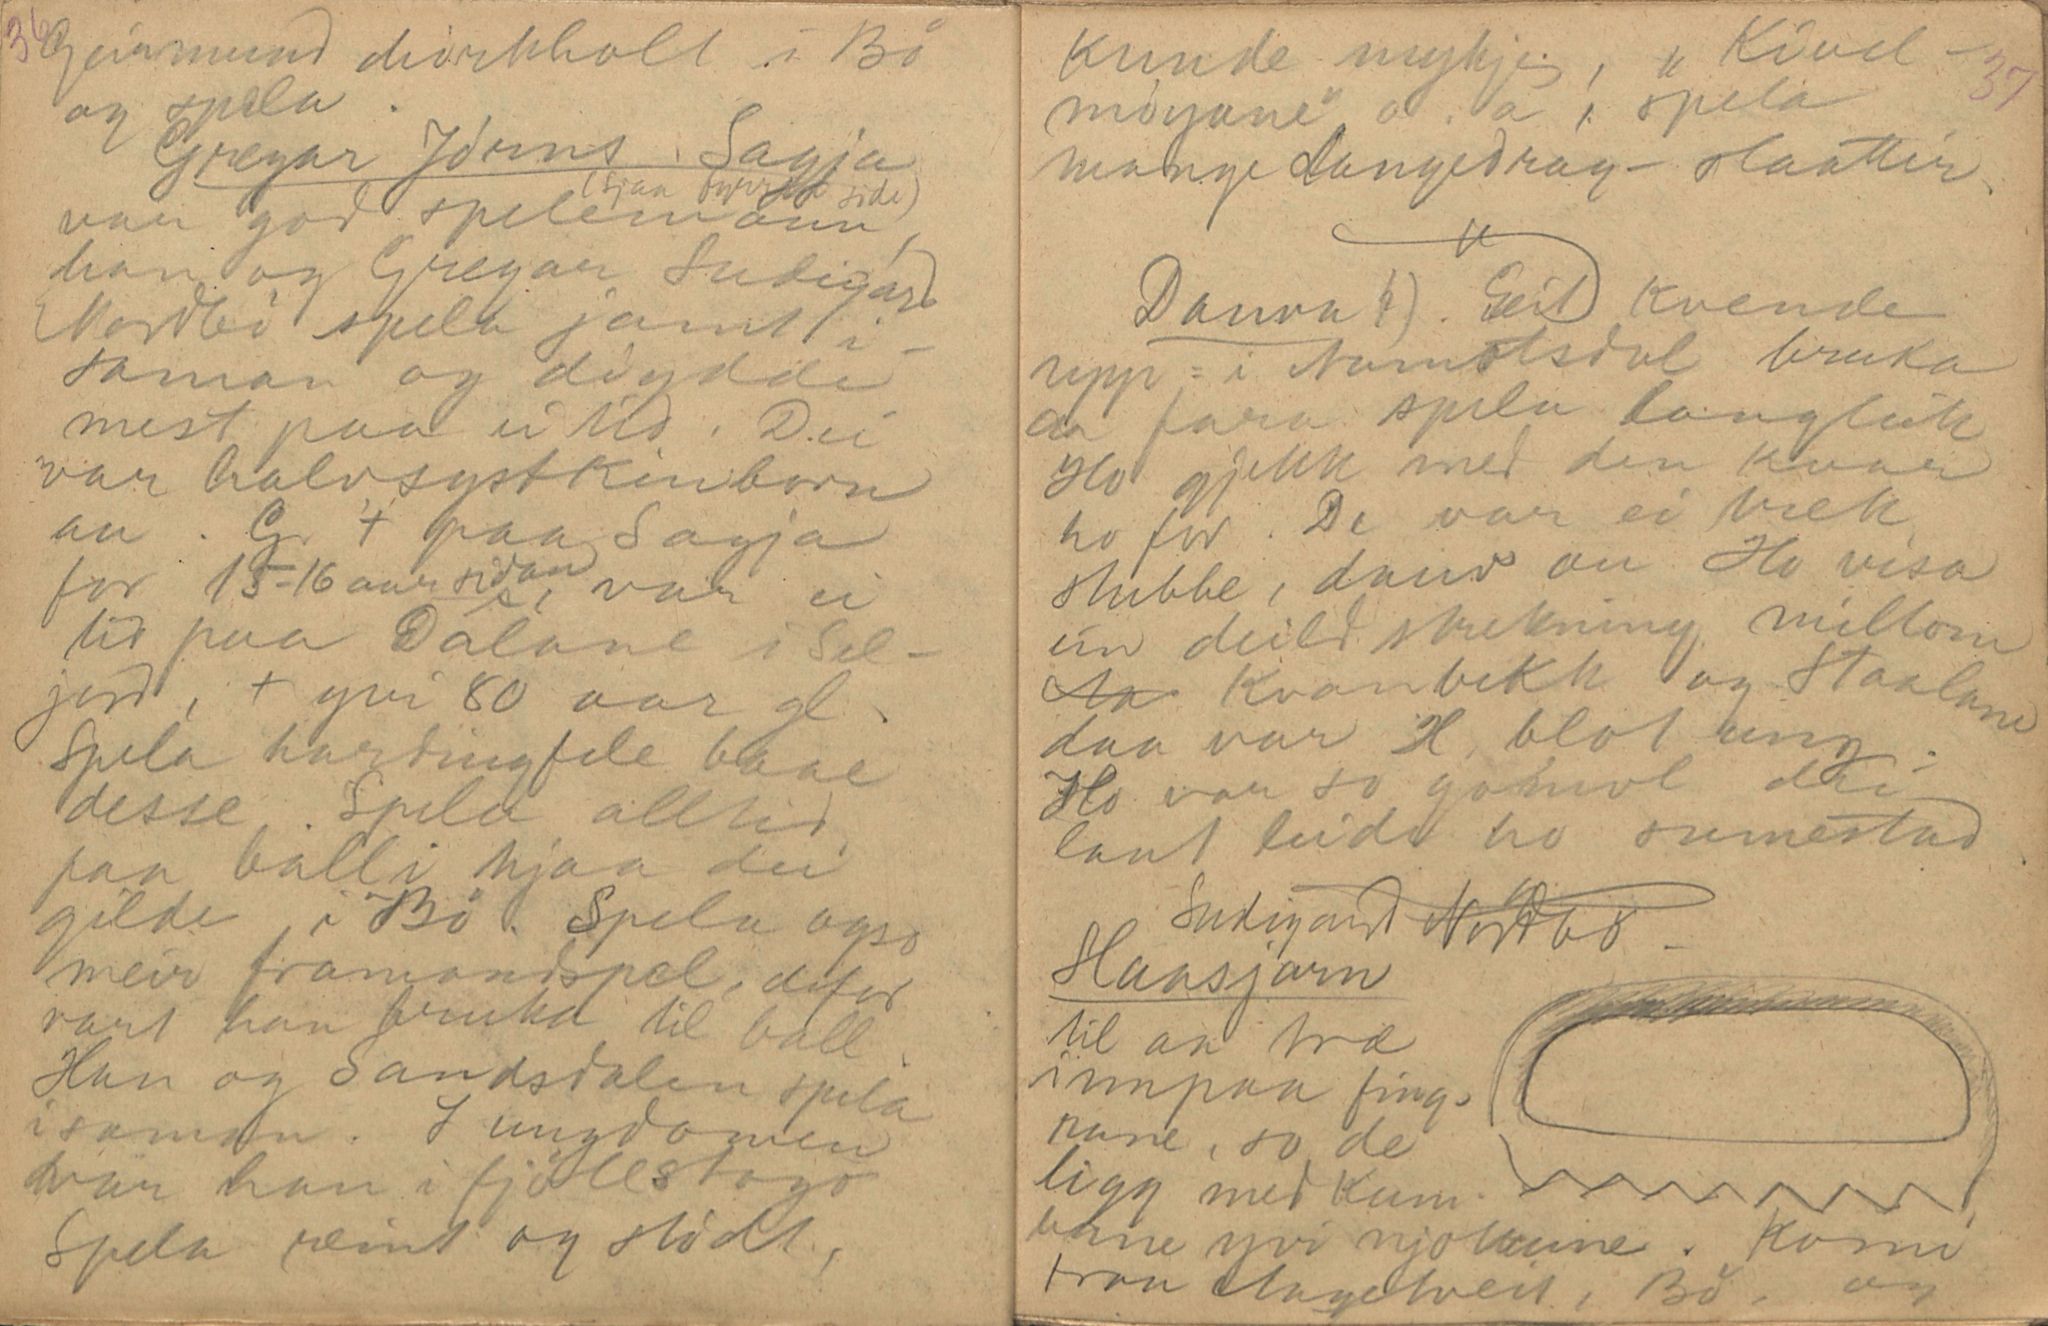 36
Geirmund Aarkholt i Bö
og spela.
Gregar Jörns, Sagja
(sjaa fyrre side)
var god spelemann,
han og Gregar Sudigard
Nordbö spela jamt i-
saman og döydde
mest paa ei tid. Dei
var halvsystkinborn
au. Gr. + paa Sagja
for 15-16 aar sidan, var ei
tid paa Dalane i Sel-
jord, + yvi 80 aar gl.
Spela hardingfele baae
desse. Spela alltid
paa balli hjaa dei
gilde i Bö. Spela ogso
meir framandspel, difor
vart han bruka til ball.
Han og Sandsdalen spela
isaman. I ungdomen
var han i fjöllestogo
Spela reint og stödt,
37
Kunde mykje, "Kivel-
möyane" o. a., spela
mange Langedrag-slaattir.
Danva †). Eit Kvende
upp-i Numedal bruka
aa fara spela langleik
Ho gjekk med den kvar
ho for. De var ei vek
stubbe, dauv au Ho visa
ein deild strekning millom
Kvanbekk og Staalane
daa var H. blot ung.
Ho var so gomol dei
laut leide ho sumestad
Sudigard Nordbö -
Haasjarn
til aa træ
innpaa fing-
rane, so de
ligg med Kam-
bane yvi njokune. Komi
fraa Hagetveit, Bö. og